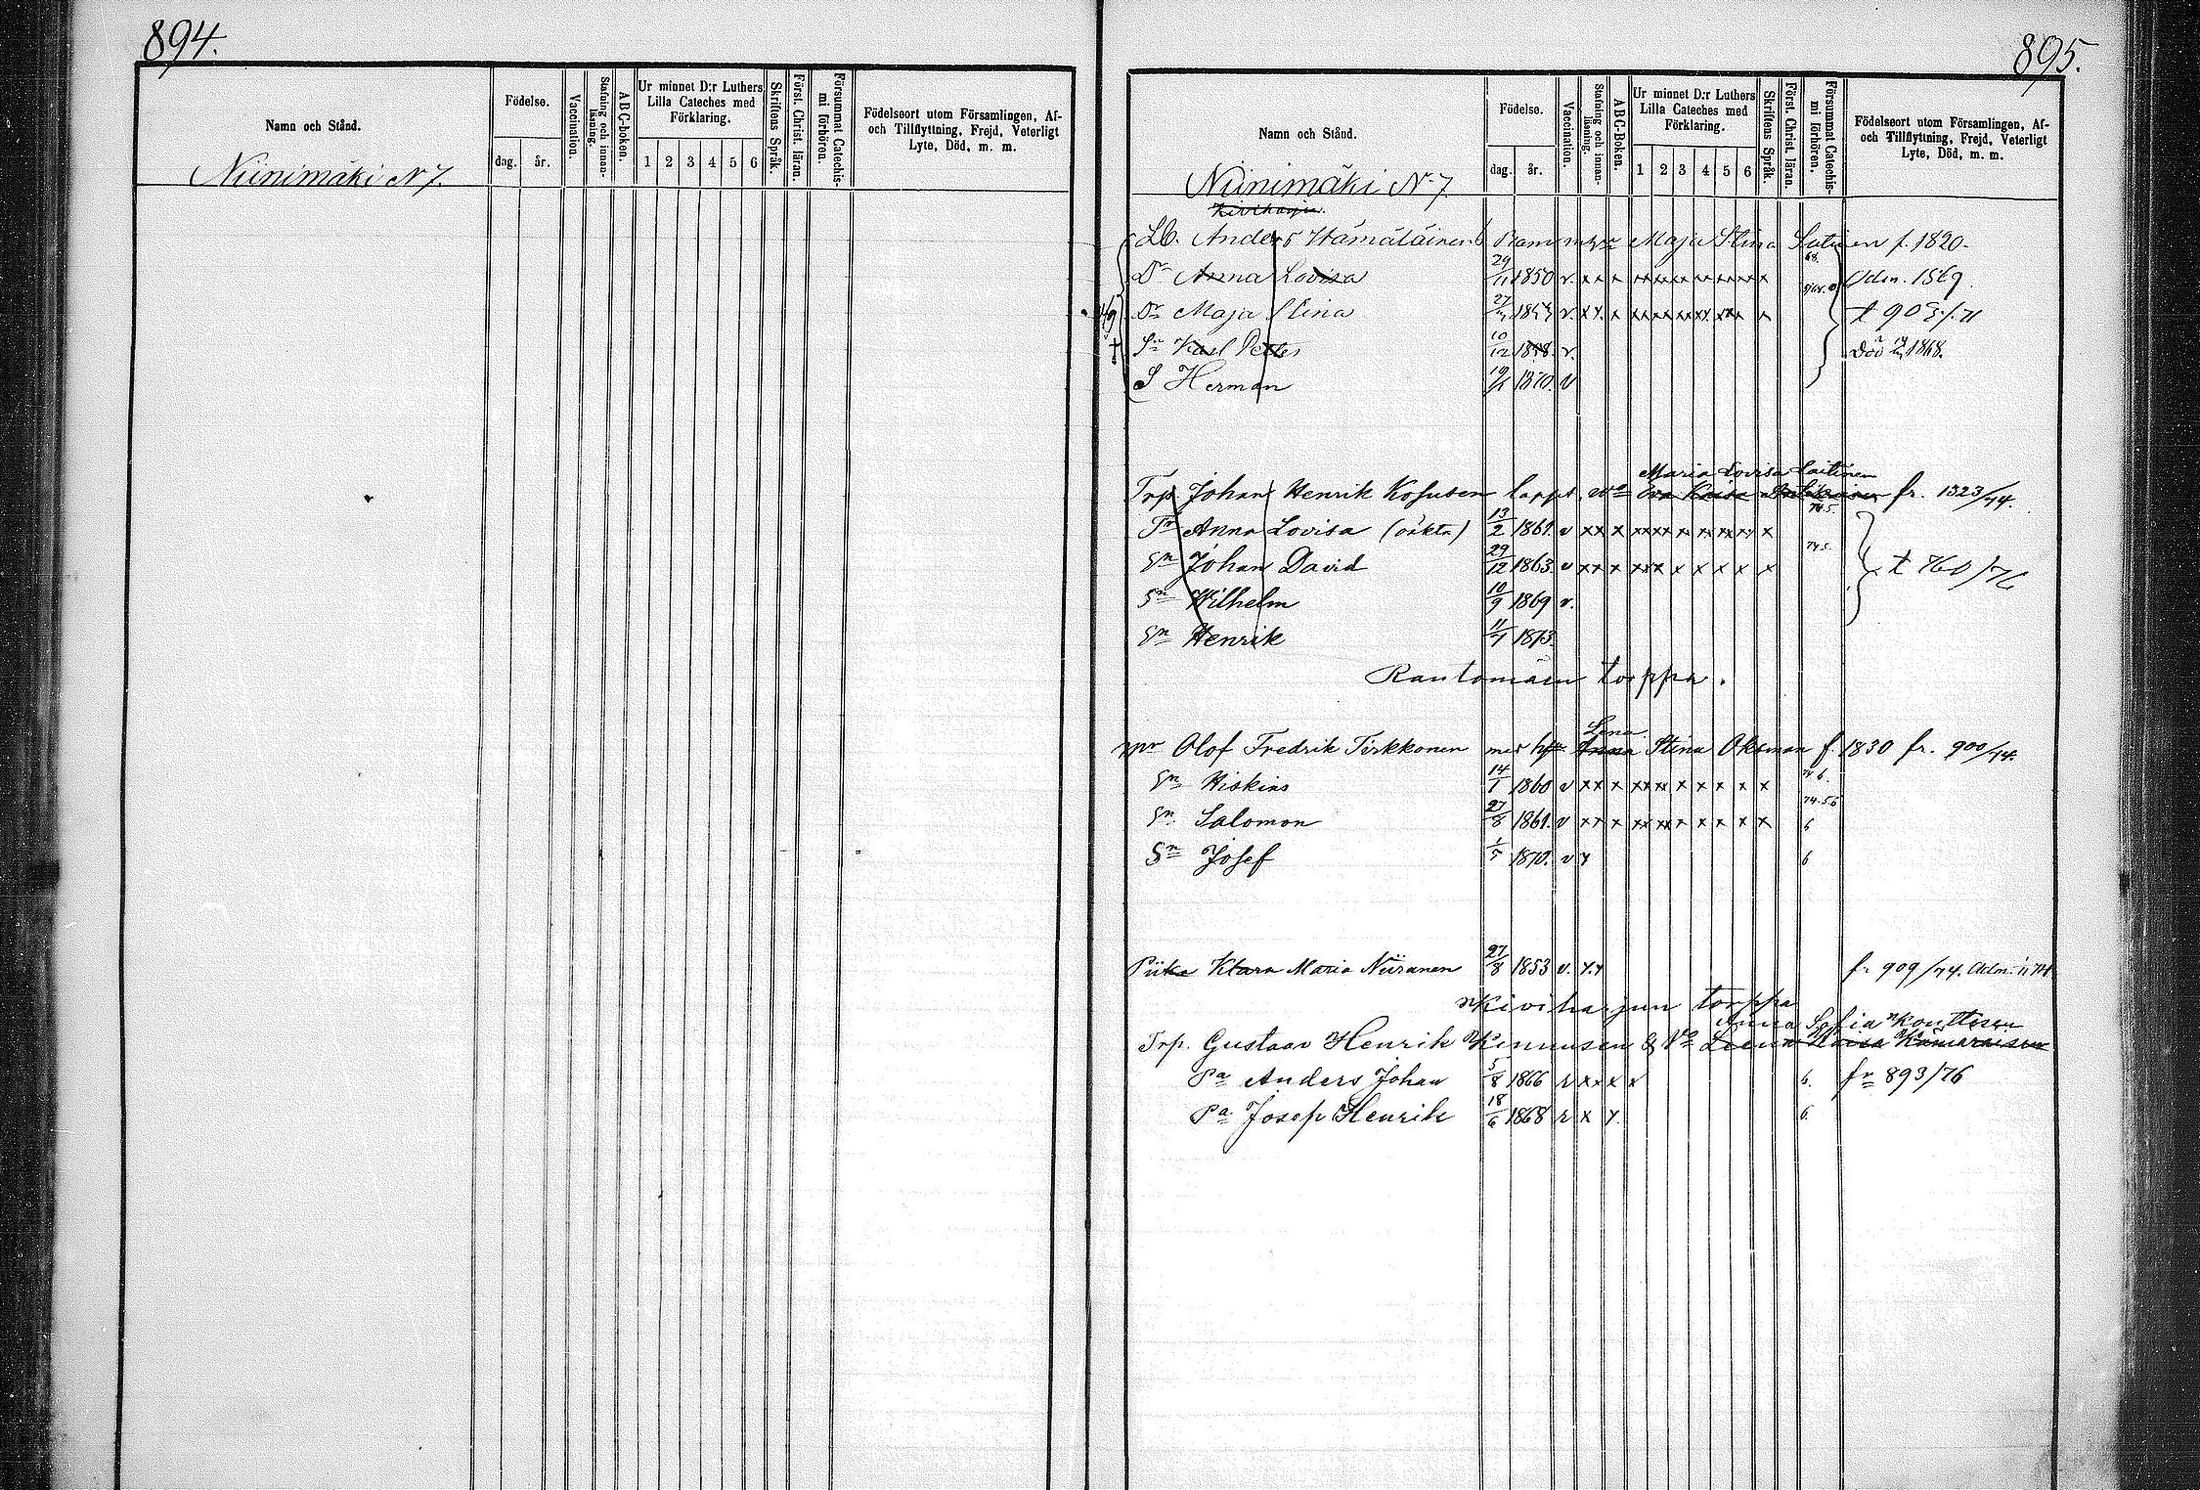 894.
Namn och Stånd.
Födelse.
dag. år.
Vaccination.
Stafning och innan-läsning.
ABC-boken.
Ur minnet D:r Luthers
Lilla Cateches med
Förklaring.
1 2 3 4 5 6
Skriftens Språk.
Först. Christ. läran.
Försummat Catechis-
mi förhören.
Födelseort utom Församlingen, Af-
och Tillflyttning, Frejd, Veterligt
Lyte, Död, m. m.
Niinimäki N 7.
895.
Namn och Stånd.
Födelse.
dag. år.
Vaccination.
Stafning och innan-läsning.
ABC-Boken.
Ur minnet D:r Luthers
Lilla Cateches med
Förklaring.
1 2 3 4 5 6
Skriftens Språk.
Först. Christ. läran.
Försummat Catechis-
mi förhören.
Födelseort utom Församlingen, Af-
och Tillflyttning, Frejd, Veterligt
Lyte, Död, m. m.
Niinimäki N 7
Kiviharju.
Lb. Anders Hämäläinen Maja Stina f. 1820.
Dr Anna Lovisa 29/11 1850 v. x x x x x x x x x x 68. Adm. 1869
Dr Maja Stina 27 v. x x x x x x x x x x t 905/71
Sn Karl Petter 10/12 v. Död 1868.
S Herman 19 1870. v
Maria Lovisa Laitinen
Trp. Johan Henrik Kosunen Kaisa fr. 1323/74.
Anna Lovisa (oäkta) 13/2 1861. v x x x x x x x x x x 74.5.
Sn Johan David 29/12 1863 v x x x x x x x x x x 745. t 760/76
Sn Wilhelm 10/9 1869 v.
Sn Henrik 11 1873.
Rantomäen torppa.
Lena
Olof Fredrik Tirkkonen med h Anna Stina Oksman f. 1830 fr. 900/74.
Sn Hiskias 14/1 1860 v x x x x x x x x x x 74 6.
Sn Salomon 27/8 1861. v x x x x x x x x x x 74.56 6
Sn Josef 1/5 1870. v x 6
Piika Klara Maria Niiranen 27/8 1853 v. x x fr 909/74. Adm.
Kiviharjun torppa
Anna Sofia Konttinen
Trp. Gustaav Henrik Kinnunen & Vo Kaisa Kämäräinen
Pa Anders Johan 5/8 1866 r x x x x 6. fr 893/76
Pa Josep Henrik 18/6 1868 r x x 6.